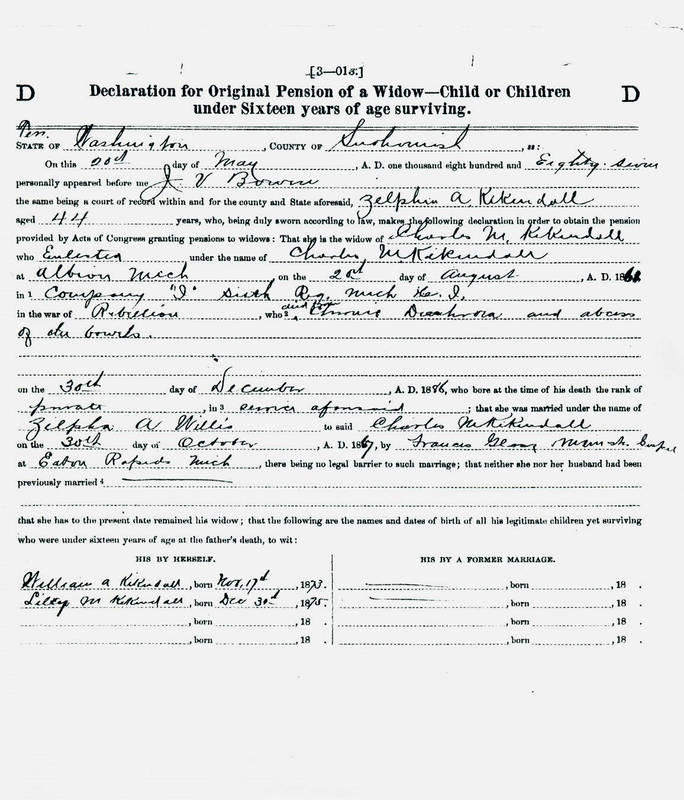 [3—015.]
D Declaration for Original Pension of a Widow—Child or Children D
under Sixteen years of age surviving.
STATE OF Washington, COUNTY OF Snohomish, ss:
On this 20th day of May, A. D. one thousand eight hundred and Eighty-Seven
personally appeared before me J V Bowen
the same being a court of record within and for the county and State aforesaid, Zelphia A Kikendall
aged 44 years, who, being duly sworn according to law, makes the following declaration in order to obtain the pension
provided by Acts of Congress granting pensions to widows: That she is the widow of Charles M. Kikendall
who Enlisted under the name of Charles M Kikendall
at Albion Mich, on the 20th day of August, A. D. 186
in 1 Company "I" Sixth Reg. Mich
in the war of Rebellion, who 2 died of Chronic Diarrhoea and abcess
of the bowels.
on the 30th day of December, A. D. 1886, who bore at the time of his death the rank of
private, in 3 service aforesaid; that she was married under the name of
Zelpha A Willis to said Charles M Kikendall
on the 30th day of October, A. D. 1867, by Francis Glass
at Eaton Rapids Mich, there being no legal barrier to such marriage; that neither she nor her husband had been
previously married 4
that she has to the present date remained his widow; that the following are the names and dates of birth of all his legitimate children yet surviving
who were under sixteen years of age at the father's death, to wit:
HIS BY HERSELF. HIS BY A FORMER MARRIAGE.
William A Kikendall, born Nov, 17th, 1873. , born , 18 .
M Kikendall, born Dec 30th, 1875. , born , 18 .
, born , 18 . , born , 18 .
, born , 18 . , born , 18 .